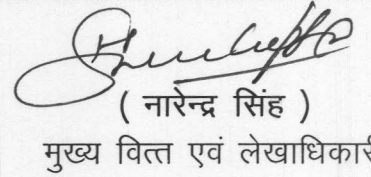 ( नारेन्द्र सिंह )
मुख्य वित्त एवं लेखाधिकारी